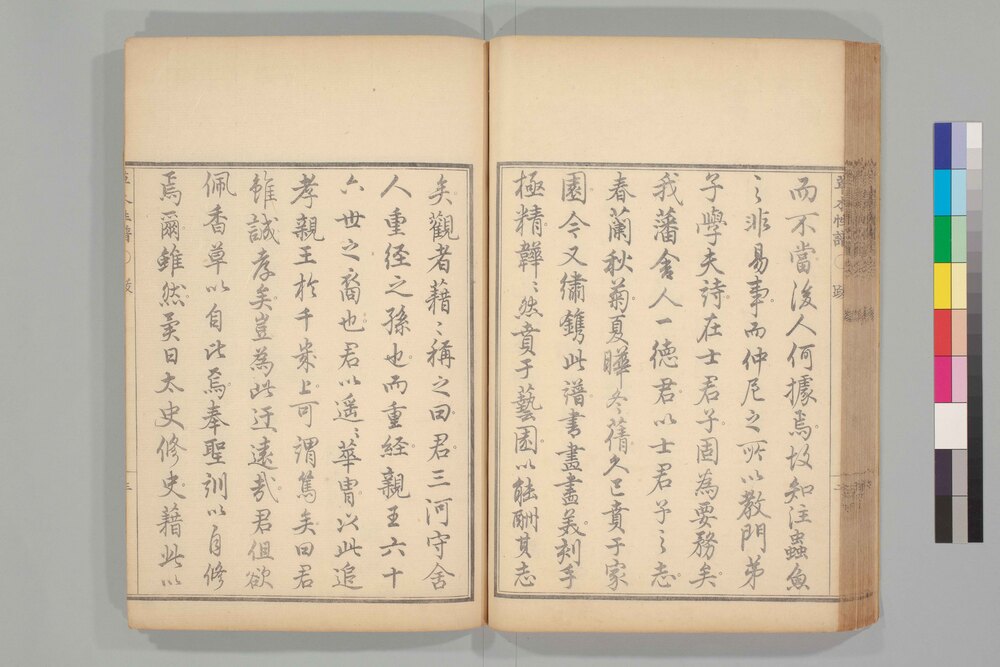 而不當後人何據焉故知注蟲魚
之非易事而仲尼之所以教門弟
子學夫詩在士君子固為要務矣
我藩舍人一德君以士君子之志
春蘭秋菊夏曄冬蒨久已賁于家
園今又繡鐫此譜書畫盡美剞手
極精韡〻然賁于藝園以能酬其志
矣觀者藉〻稱之曰君三河守舍
人重经之孫也而重経親王六十
六世之裔也君以遥〻華冑以此追
孝親王於千歲上可謂篤矣曰君
雖誠孝矣豈為此迂遠哉君但欲
佩香草以自比焉奉聖訓以自修
焉爾雖然異日太史修史藉此以